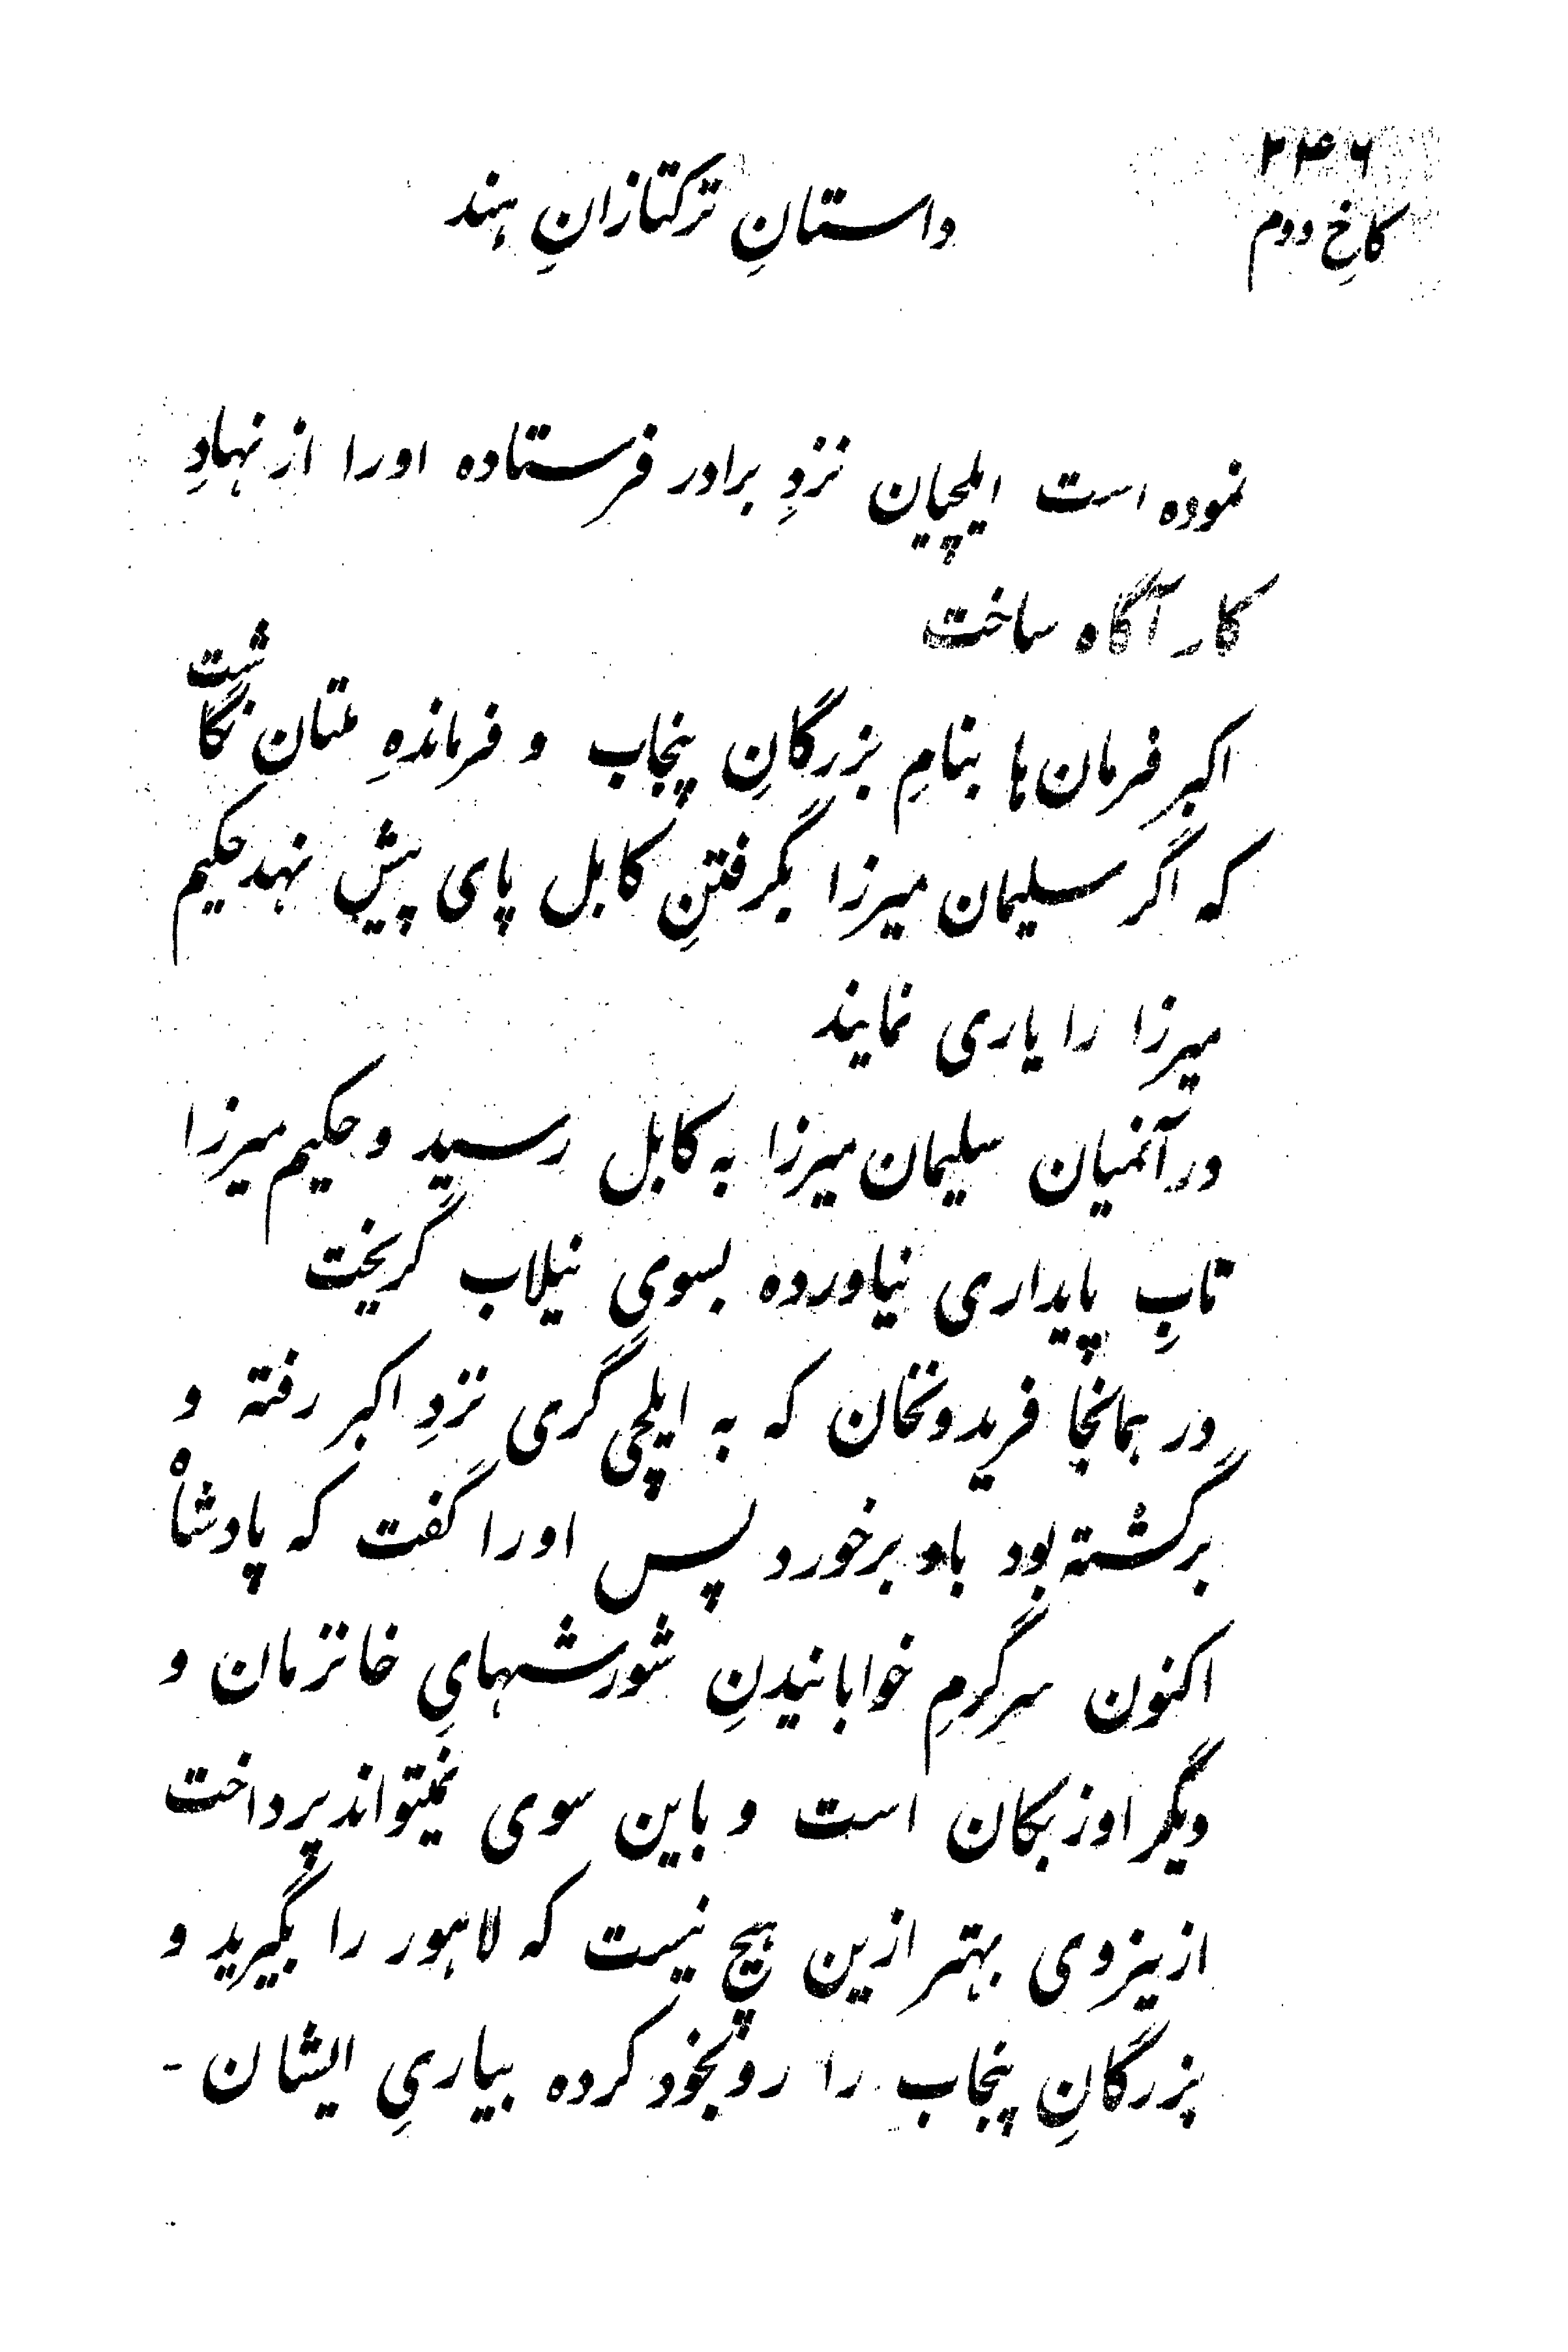 ۲۴۶
کاخِ دوم
داستانِ ترکتازانِ هند
نموده است ایلچیان نزدِ برادر فرستاده اورا از نهادِ
کار آگاه ساخت
اکبر فرمان‌ها بنامِ بزرگانِ پنجاب و فرماندهِ ملتان نگاشت
که اگر سلیمان میرزا بگرفتنِ کابل پای پیش نهد حکیم
میرزا را یاری نمایند
در آنمیان سلیمان میرزا به کابل رسید و حکیم میرزا
تابِ پایداری نیاورده بسوی نیلاب گریخت
در همانجا فریدونخان که به ایلچی گری نزدِ اکبر رفته و
برگشته بود باو برخورد پس اورا گفت که پادشاه
اکنون سرگرمِ خوابانیدنِ شورشهایِ خانزمان و
دیگر اوزبکان است و باین سوی نمیتواند پرداخت
ازینروی بهتر ازین هیچ نیست که لاهور را بگیرید و
بزرگانِ پنجاب را روبخود کرده بیاریِ ایشان -